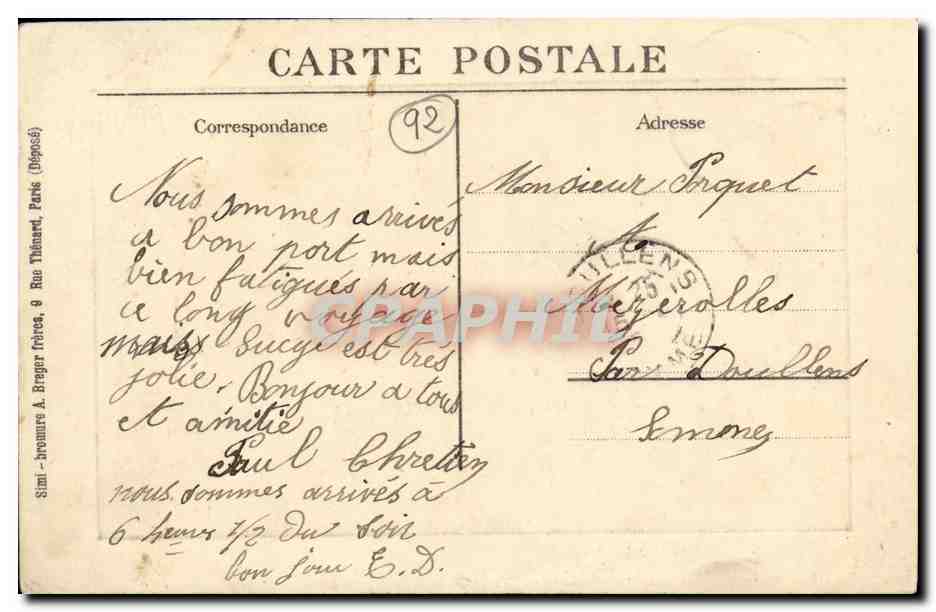 CARTE POSTALE
Correspondance
92
Adresse
Nous sommes arrivés
a bon port mais
bien fatigués par
ce long voyage
mais Sucy est tres
jolie. Bonjour a tous
et amitie
Paul Chretien
nous sommes arrivés à
6 heures 1/2 du soir
bon jour E. D.
Monsieur Porquet
A
Mezerolles
Par Doullens
Somme
ULLENS
25
CPAPHIL
Simi-bromure A. Breger frères, 9 Rue Thénard, Paris (Déposé)